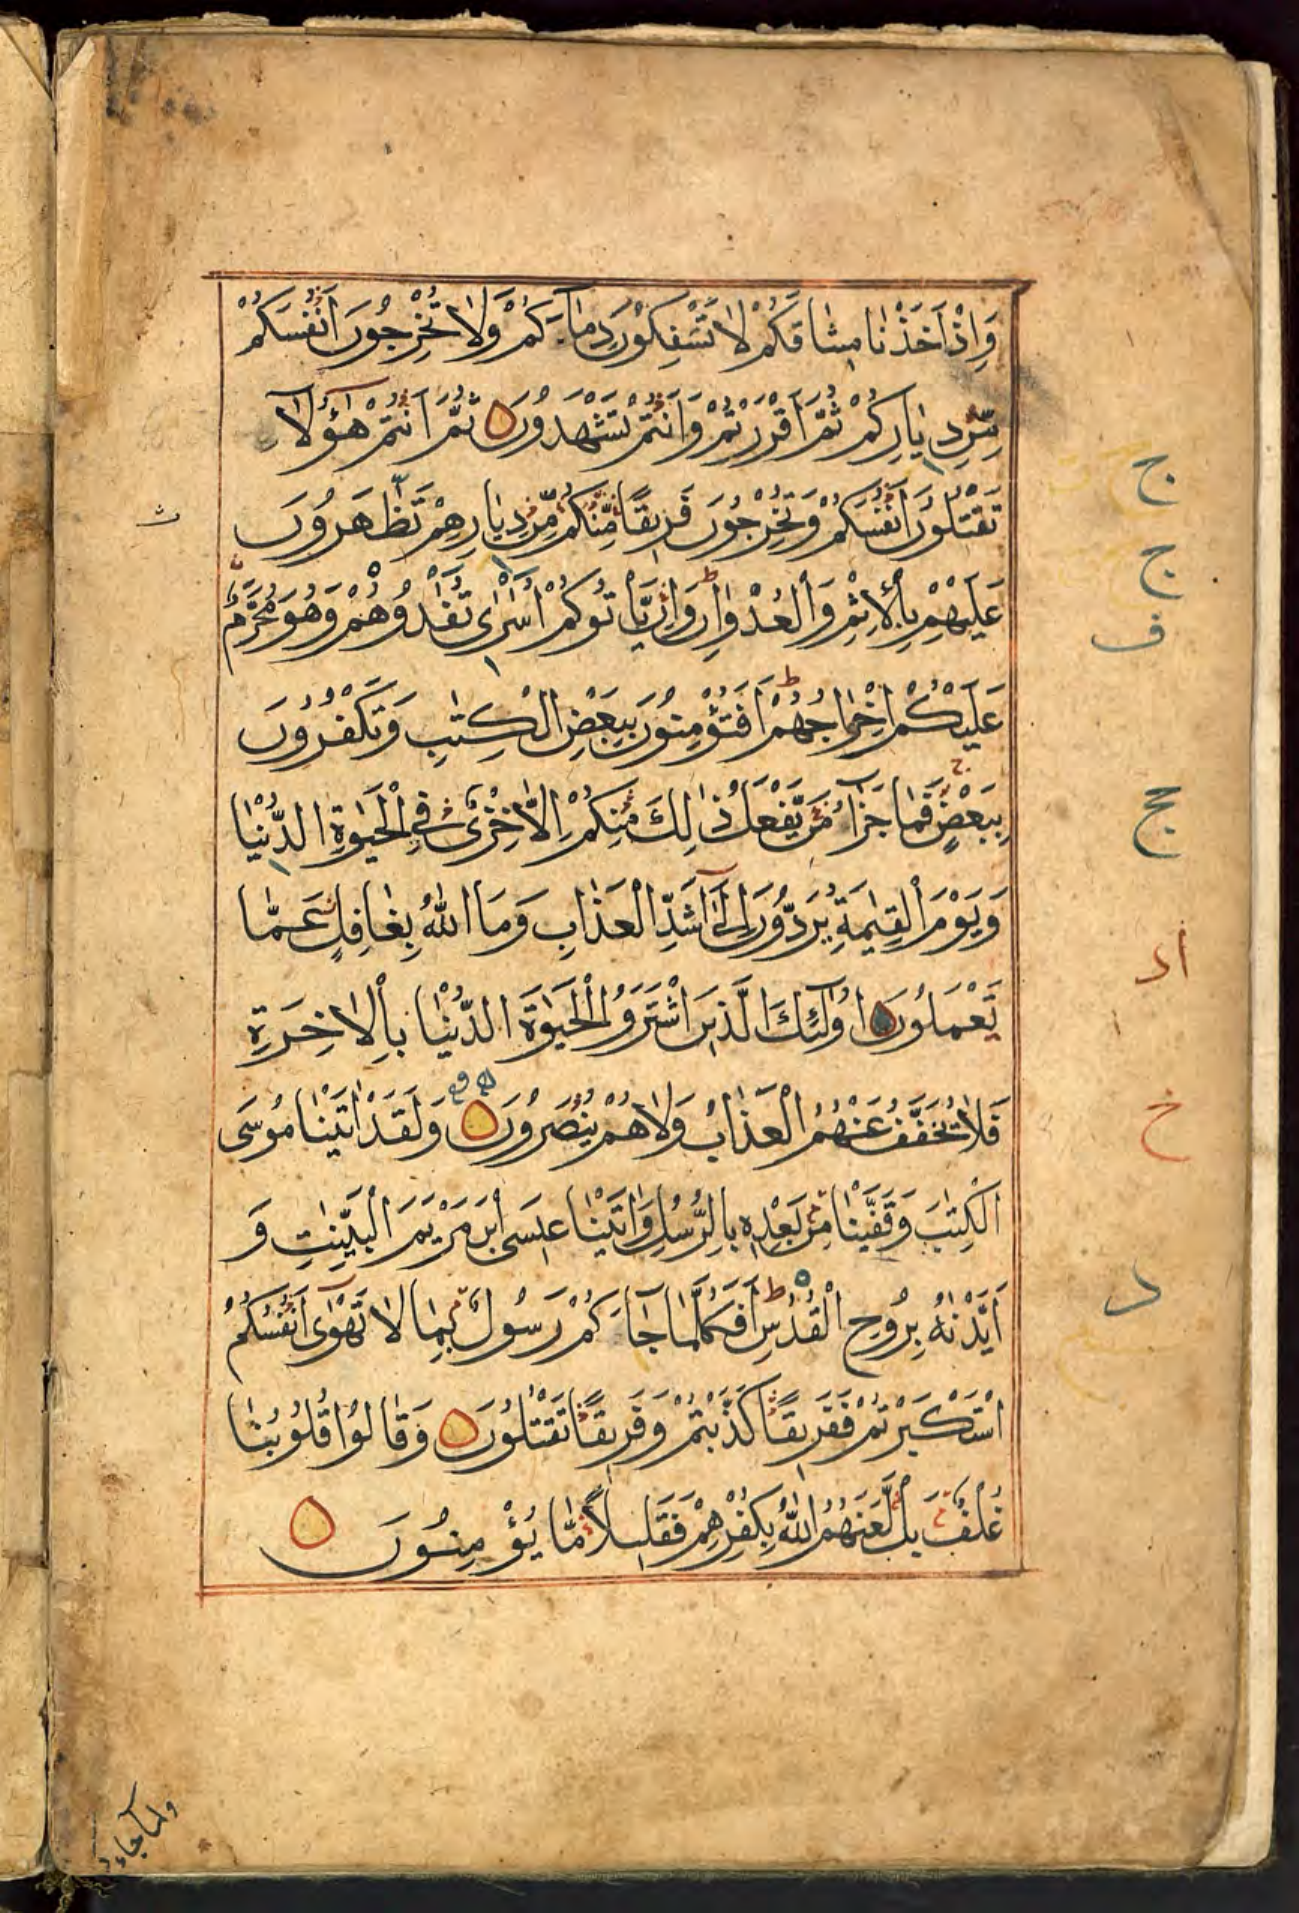 وَاِذْ اَخَذْنَا مِيثَاقَكُمْ لَا تَسْفِكُوْنَ دِمَاءَكُمْ وَلَا تُخْرِجُوْنَ اَنْفُسَكُمْ
مِّنْ دِيَارِكُمْ ثُمَّ اَقْرَرْتُمْ وَاَنْتُمْ تَشْهَدُوْنَ ثُمَّ اَنْتُمْ هٰؤُلَآ
تَقْتُلُوْنَ اَنْفُسَكُمْ وَتُخْرِجُوْنَ فَرِيْقًا مِّنْكُمْ مِّنْ دِيَارِهِمْ تَظّٰهَرُوْنَ
عَلَيْهِمْ بِالْاِثْمِ وَالْعُدْوَانِ وَاِنْ يَّاْتُوْكُمْ اُسٰرٰى تُفٰدُوْهُمْ وَهُوَ مُحَرَّمٌ
عَلَيْكُمْ اِخْرَاجُهُمْ اَفَتُؤْمِنُوْنَ بِبَعْضِ الْكِتٰبِ وَتَكْفُرُوْنَ
بِبَعْضٍ فَمَا جَزَآءُ مَنْ يَّفْعَلُ ذٰلِكَ مِنْكُمْ اِلَّا خِزْىٌ فِى الْحَيٰوةِ الدُّنْيَا
وَيَوْمَ الْقِيٰمَةِ يُرَدُّوْنَ اِلٰٓى اَشَدِّ الْعَذَابِ وَمَا اللّٰهُ بِغَافِلٍ عَمَّا
تَعْمَلُوْنَ اُولٰٓئِكَ الَّذِيْنَ اشْتَرَوُا الْحَيٰوةَ الدُّنْيَا بِالْاٰخِرَةِ
فَلَا يُخَفَّفُ عَنْهُمُ الْعَذَابُ وَلَا هُمْ يُنْصَرُوْنَ وَلَقَدْ اٰتَيْنَا مُوْسَى
الْكِتٰبَ وَقَفَّيْنَا مِنْ بَعْدِهٖ بِالرُّسُلِ وَاٰتَيْنَا عِيْسَى ابْنَ مَرْيَمَ الْبَيِّنٰتِ وَ
اَيَّدْنٰهُ بِرُوْحِ الْقُدُسِ اَفَكُلَّمَا جَآءَكُمْ رَسُوْلٌ بِمَا لَا تَهْوٰٓى اَنْفُسُكُمُ
اسْتَكْبَرْتُمْ فَفَرِيْقًا كَذَّبْتُمْ وَفَرِيْقًا تَقْتُلُوْنَ وَقَالُوْا قُلُوْبُنَا
غُلْفٌ بَلْ لَّعَنَهُمُ اللّٰهُ بِكُفْرِهِمْ فَقَلِيْلًا مَّا يُؤْمِنُوْنَ
ولما جاء